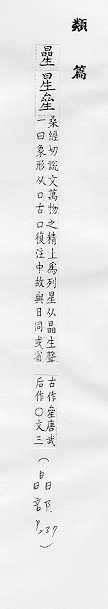 類篇
曐星𤯟
桑經切說文萬物之精上爲列星从晶生聲
一曰象形从口古口復注中故與日同或省
古作𤯟唐武
后作〇文三
(晶部 p.237)